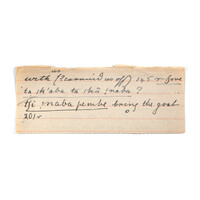 us
with (Carried us off) 145 v. gove
'ta sh'aba ta shû ; naba ?
Tji ; naba pembe bring the goat
201 v